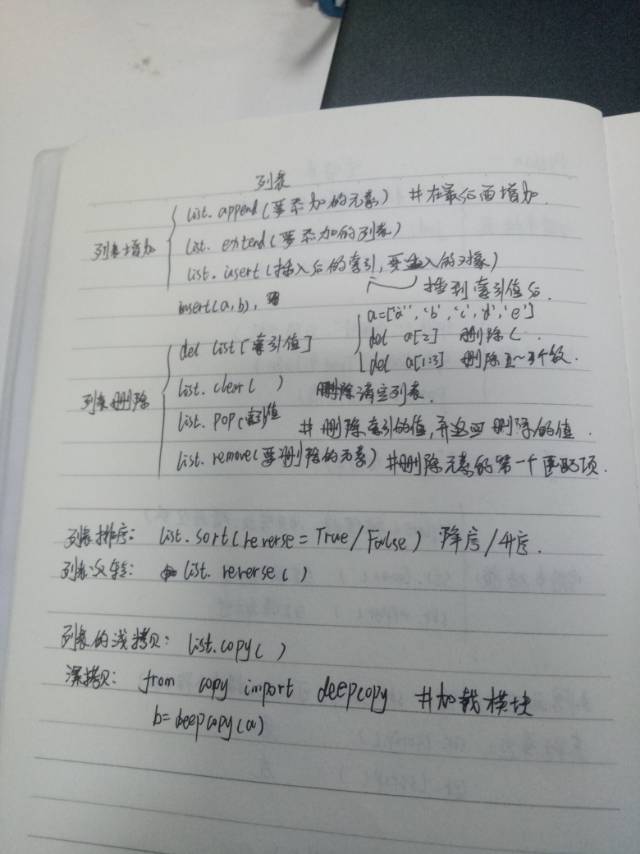 列表
list. append(要添加的元素) #在最后面增加
列表增加
list. extend(要添加的列表)
list. insert(插入后的索引,要插入的对象)
insert(a,b),
插到索引值后.
a=['a','b','c','d','e']
del list[索引值]
del a[2] 删除c.
del a[1:3] 删除2~3个数.
列表删除
list. clear( ) 删除清空列表.
list. pop(索引值 #删除索引的值,并返回删除的值.
list. remove(要删除的元素) #删除元素的第一个匹配项.
列表排序: list. sort(reverse=True/False) 降序/升序.
列表反转: list. reverse( )
列表的浅拷贝: list.copy( )
深拷贝: from copy import deepcopy #加载模块
b=deepcopy(a)